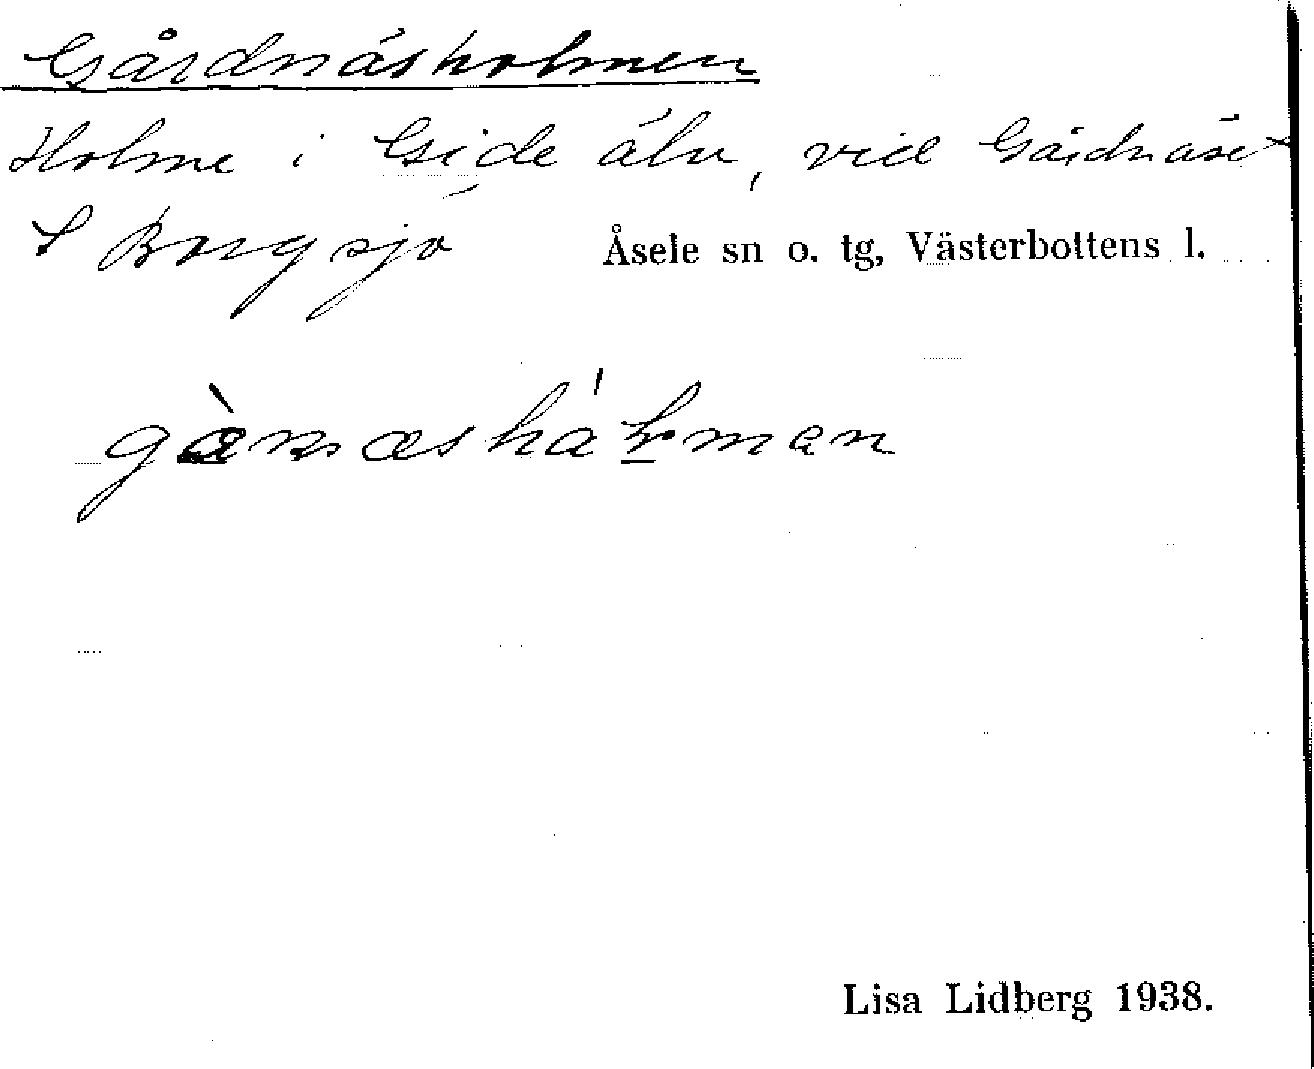 Gårdnäsholmen
Holme i Gide älv, vid Gårdnäset
S Borgsjö Åsele sn o. tg, Västerbottens l.
Lisa Lidberg 1938.